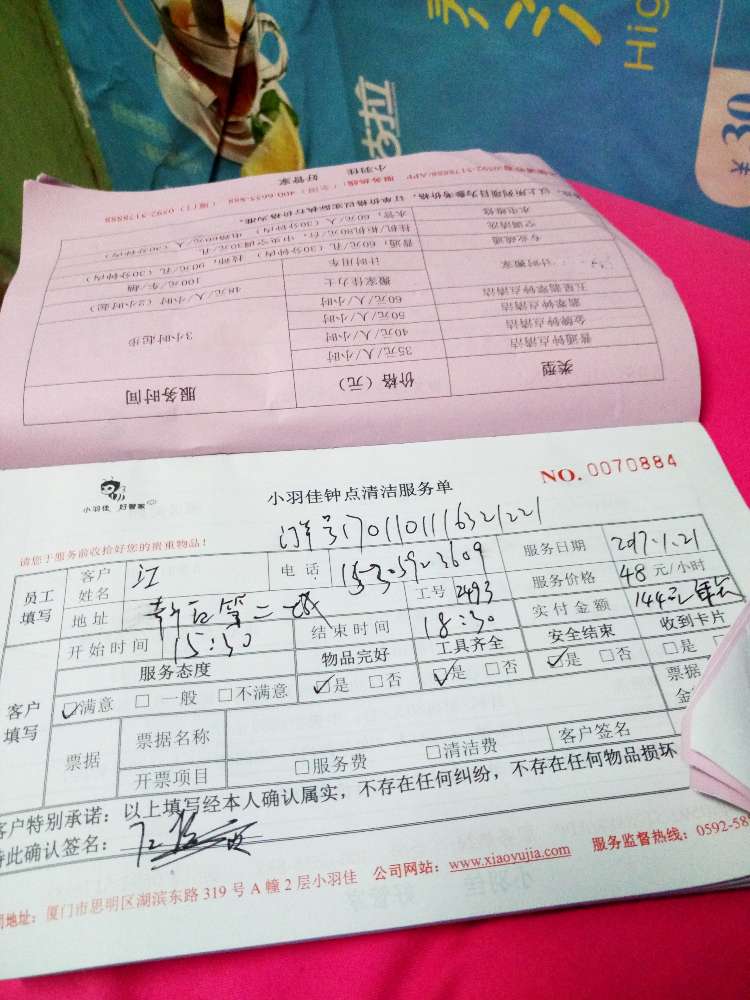 High
¥30
小羽佳 好管家
0592-5178888/APP 服务热线:(全国)400-6655-888 (厦门)0592-5178888
以上所列项目为参考价格,订单价格以实际执行价格为准。
水电维修 水管:60元/人(30分钟内) 电路60元/人(30分钟内)
空调清洗 挂机/柜机80元/台,中央空调30元/孔
专业疏通 普通:60元/孔(30分钟内) 特殊:90元/孔(30分钟内)
计时搬家 计时用车 100元/车/辆
搬家佳力士 48元/人/小时(2小时起)
五星翡翠钟点清洁 60元/人/小时
翡翠钟点清洁 50元/人/小时
金牌钟点清洁 40元/人/小时
普通钟点清洁 35元/人/小时 3小时起步
类型 价格(元) 服务时间
小羽佳 好管家
小羽佳钟点清洁服务单
NO.0070884
请您于服务前收拾好您的贵重物品!
员工填写 客户姓名 江 电话 服务日期
地址 工号 2493 服务价格 48元/小时
开始时间 15:30 结束时间 18:30 实付金额 144元
客户填写 服务态度 物品完好 工具齐全 安全结束 收到卡片
☑满意 □一般 □不满意 ☑是 □否 ☑是 □否 ☑是 □否 □是
票据 票据名称 客户签名 票据
开票项目 □服务费 □清洁费
客户特别承诺:以上填写经本人确认属实,不存在任何纠纷,不存在任何物品损坏
特此确认签名:
地址:厦门市思明区湖滨东路319号A幢2层小羽佳 公司网站:www.xiaoyujia.com 服务监督热线:0592-58